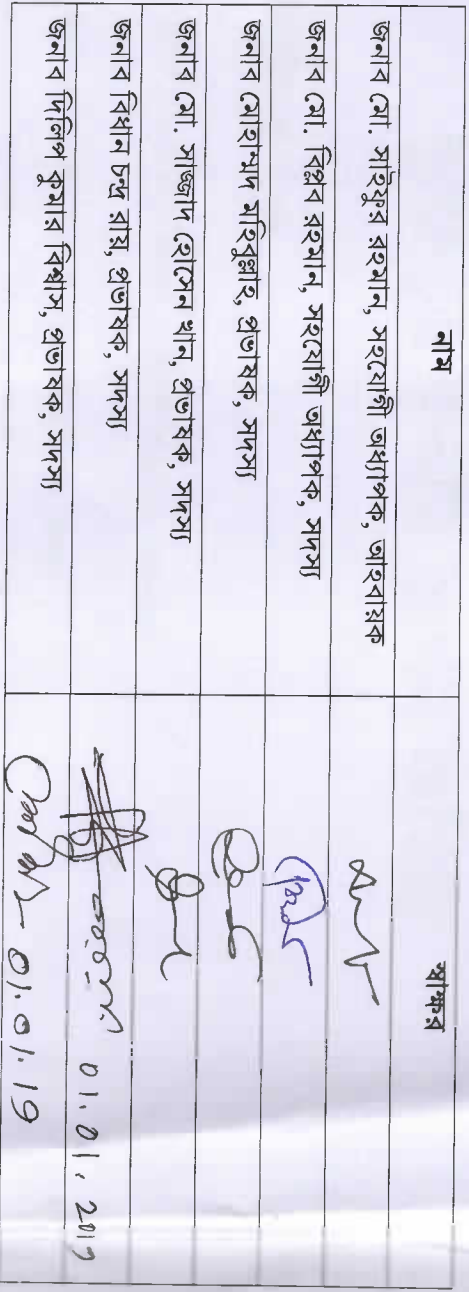 নাম স্বাক্ষর
জনাব মো. সাইফুর রহমান, সহযোগী অধ্যাপক, আহবায়ক
জনাব মো. বিপ্লব রহমান, সহযোগী অধ্যাপক, সদস্য
জনাব মোহাম্মদ মহিবুল্লাহ, প্রভাষক, সদস্য
জনাব মো. সাজ্জাদ হোসেন খান, প্রভাষক, সদস্য
জনাব বিধান চন্দ্র রায়, প্রভাষক, সদস্য 01.01.2019
জনাব দিলিপ কুমার বিশ্বাস, প্রভাষক, সদস্য 01.01.19